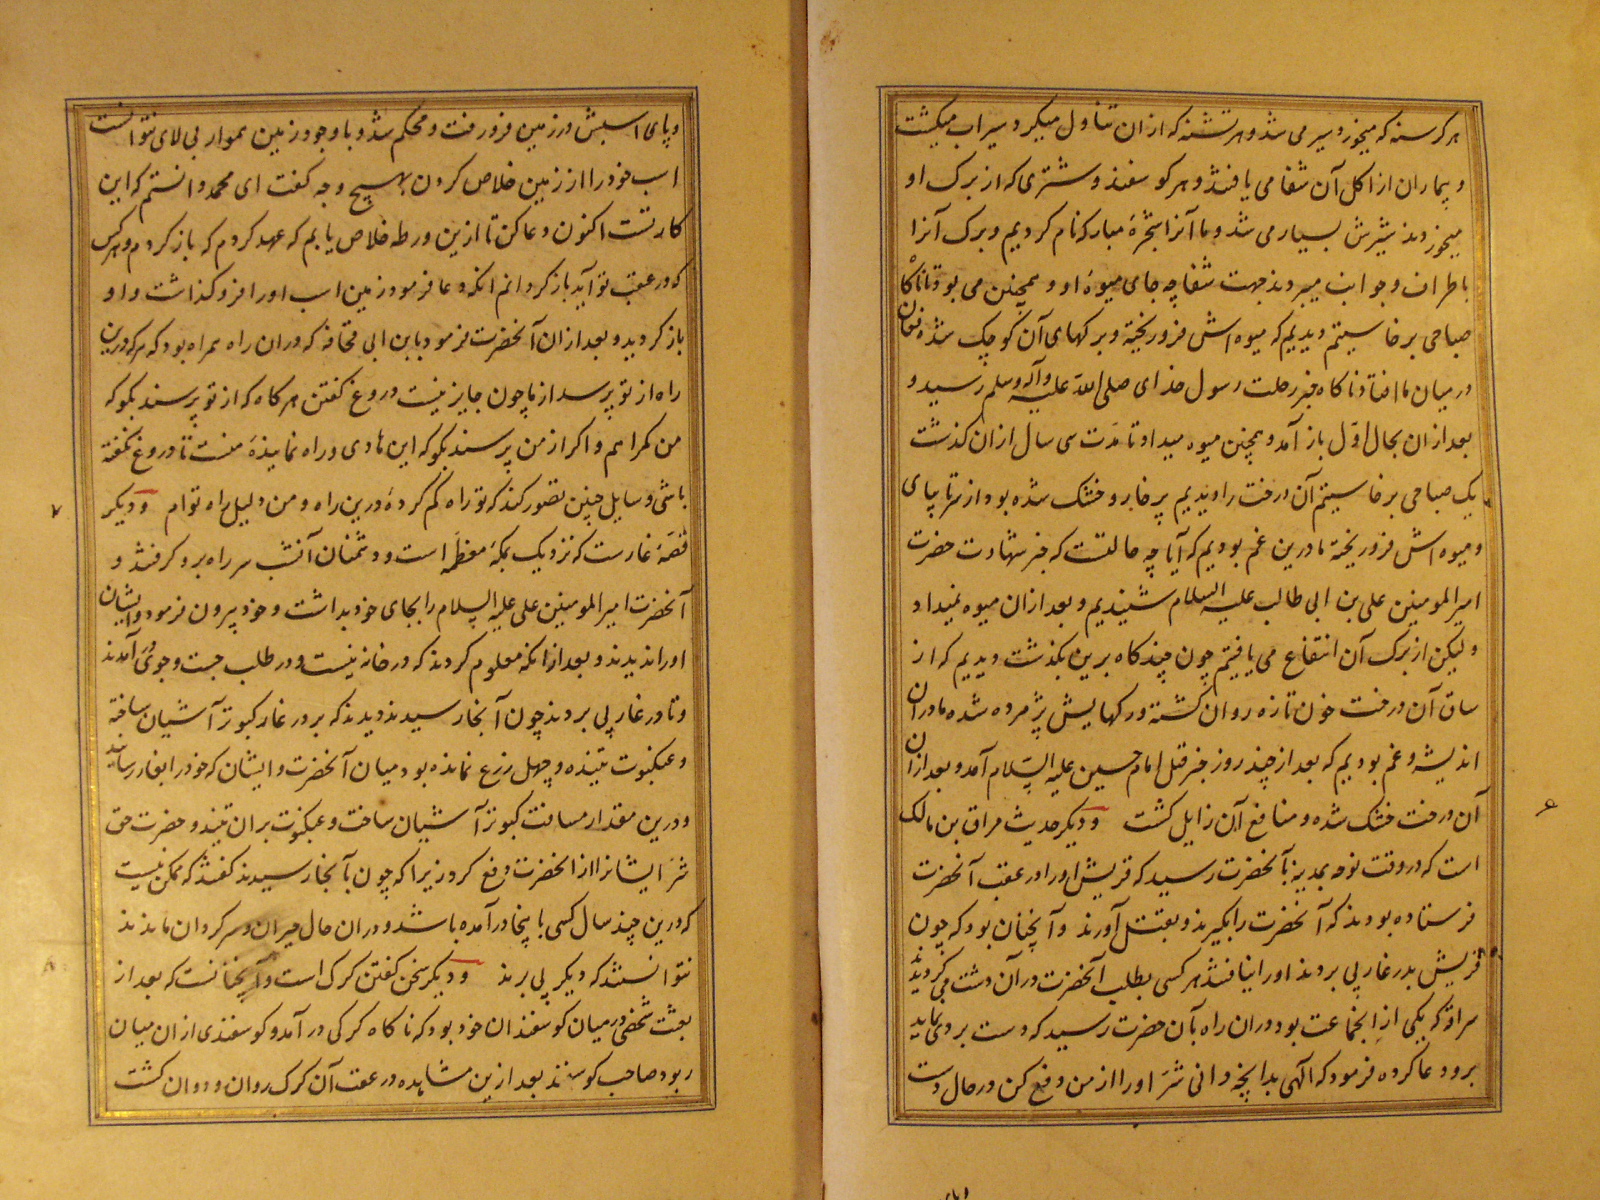 هر کرسنه که میخورد سیر می شد و هر تشنه که ازان تناول میکرد سیراب میکشت
و بیماران از اکل آن شفا می یافتند و هر کوسفند و شتری که از برک او
میخوردند شیرش بسیار می شد و ما آنرا شجرهٔ مبارکه نام کردیم و برک آنرا
باطراف و جوانب میبردند جهت شفا چه جای میوهٔ او و همچنین می بود تا ناکاه
صباحی برخاستیم دیدیم که میوه اش فرو ریخته و برکهای آن کوچک شده فغان
در میان ما افتاد ناکاه خبر رحلت رسول خدای صلی الله علیه و آله وسلم رسید و
بعد ازان بحال اول باز آمد و همچنین میوه میداد تا مدت سی سال ازان کذشت
یک صباحی برخاستیم آن درخت را دیدیم پر خار و خشک شده بود از سر تا پای
و میوه اش فرو ریخته ما درین غم بودیم که آیا چه حالتست که خبر شهادت حضرت
امیر المومنین علی بن ابی طالب علیه السلام شنیدیم و بعد ازان میوه نمیداد
و لیکن از برک آن انتفاع می یافتیم چون چند کاه برین بکذشت دیدیم که از
ساق آن درخت خون تازه روان کشته و برکهایش پژمرده شده ما دران
اندیشه و غم بودیم که بعد از چند روز خبر قتل امام حسین علیه السلام آمد و بعد ازان
آن درخت خشک شده و منافع آن زایل کشت و دیکر حدیث سراقة بن مالک
است که در وقت توجه بمدینه بآنحضرت رسید که قریش او را در عقب آنحضرت
فرستاده بودند که آنحضرت را بکیرند و بقتل آورند و آنچنان بود که چون
قریش بدر غار پی بردند او را نیافتند هر کسی بطلب آنحضرت در آن دشت می کردیدند
سراقه که یکی از انجماعت بود دران راه بآن حضرت رسید که دست بردی نماید
برو دعا کرده فرمود که الهی بدانچه دانی شر او را از من دفع کن در حال دست
و پای اسبش در زمین فرو رفت و محکم شد و با وجود زمین هموار بی لای نتوانست
اسب خود را از زمین خلاص کردن بهیچ وجه کفت ای محمد دانستم که این
کار تست اکنون دعا کن تا ازین ورطه خلاص یابم که عهد کردم که باز کردم و هر کس
که در عقب تو آید باز کردانم انکه دعا فرمود زمین اسب او را فرو کذاشت و او
باز کردید و بعد ازان آنحضرت فرمود بابن ابی قحافه که دران راه همراه بود که هر که درین
راه از تو پرسد از ما چون جایز نیست دروغ کفتن هر کاه که از تو پرسند بکو که
من کمراهم و اکر از من پرسند بکو که این هادی و راه نمایندهٔ منست تا دروغ نکفته
باشی و سایل چنین تصور کند که تو راه کم کردهٔ درین راه و من دلیل راه توام و دیکر
قصهٔ غارست که نزدیک بمکهٔ معظمه است و دشمنان آنشب سر راه برو کرفتند و
آنحضرت امیر المومنین علی علیه السلام را بجای خود بداشت و خود بیرون فرمود و ایشان
او را ندیدند و بعد از انکه معلوم کردند که در خانه نیست و در طلب جست و جوی آمدند
و تا در غار پی بردند چون آنجا رسیدند دیدند که بر در غار کبوتر آشیان ساخته
و عنکبوت تنیده و چهل زرع نمانده بود میان آنحضرت و ایشان که خود را بغار رسانید
و درین مقدار مسافت کبوتر آشیان ساخت و عنکبوت بران تنید و حضرت حق
شر ایشانرا از انحضرت دفع کرد زیرا که چون بآنجا رسیدند کفتند که ممکن نیست
که درین چند سال کسی باینجا درآمده باشد و دران حال حیران و سرکردان ماندند
نتوانستند که دیکر پی برند و دیکر سخن کفتن کرک است و آنچنانست که بعد از
بعثت شخصی در میان کوسفندان خود بود که ناکاه کرکی درآمد و کوسفندی ازان میان
ربود صاحب کوسفند بعد ازین مشاهده در عقب آن کرک روان و دوان کشت